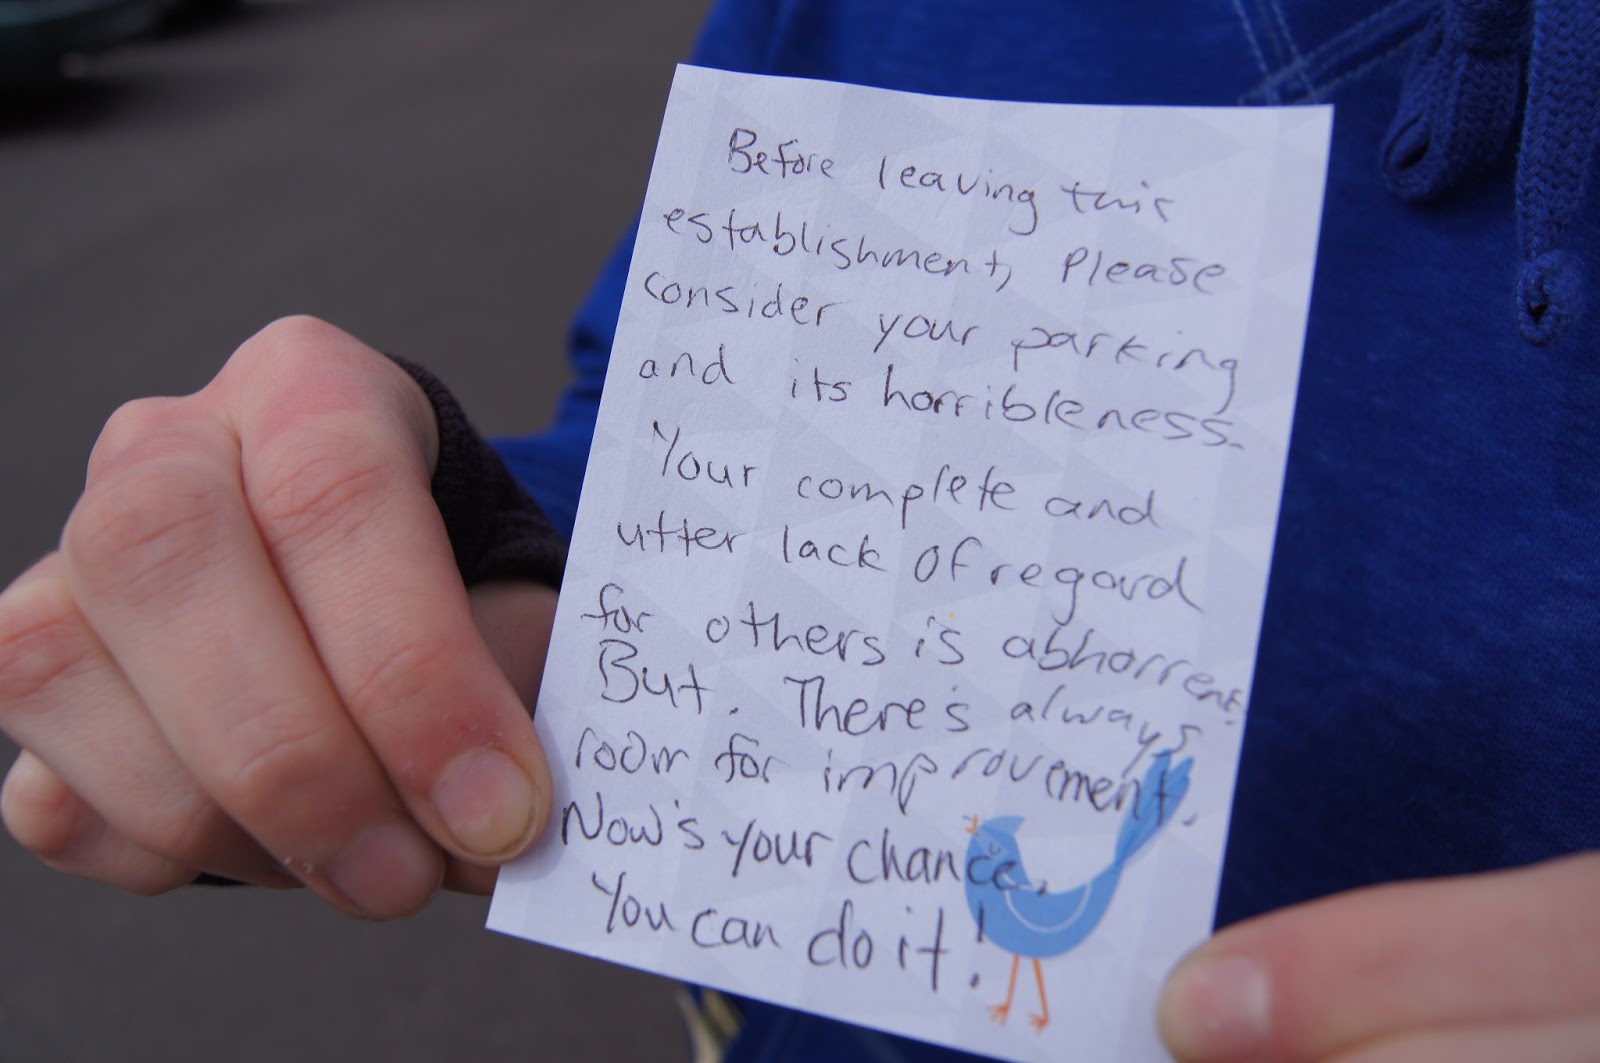 Before leaving this
establishment, Please
consider your parking
and its horribleness.
Your complete and
utter lack of regard
for others is abhorrent.
But. There's always
room for improvement.
Now's your chance.
You can do it!